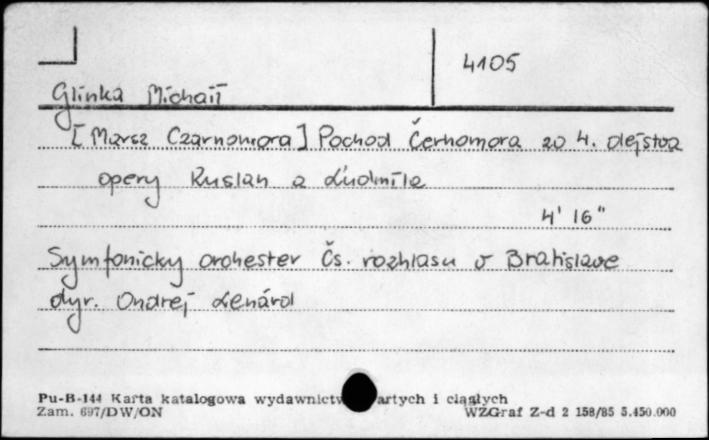 4105
Glinka Michaił
[Marsz Czarnomora] Pochod Černomora zo 4. dejstva
opery Ruslan a Ľudmila
4' 16"
Symfonicky orchester Čs. rozhlasu v Bratislave
dyr. Ondrej Lenárd
Pu-B-144 Karta katalogowa wydawnictw artych i ciągłych
Zam. 697/DW/ON WZGraf Z-d 2 158/85 5.450.000